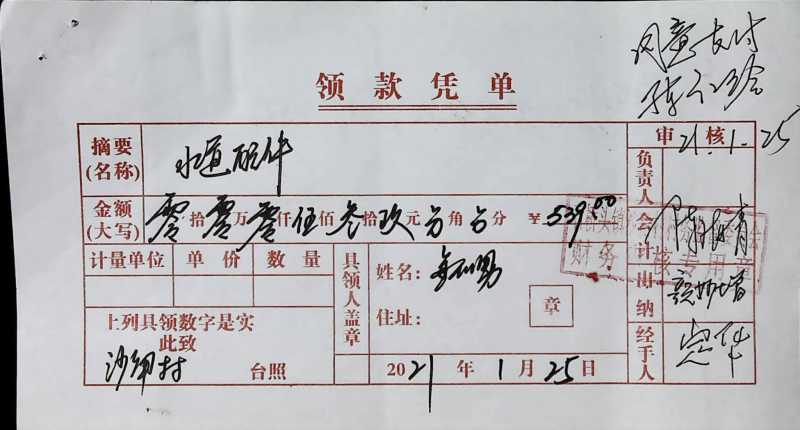 领款凭单
同意支付
21.1.25
摘要(名称) 水道配件
审核
负责人
金额(大写) 零拾零万零仟伍佰叁拾玖元 角 分 ¥539.00
会计
计量单位 单价 数量
具领人盖章
姓名:
章
住址:
出纳
上列具领数字是实
此致
台照
2021年1月25日
经手人
财务
核专用章